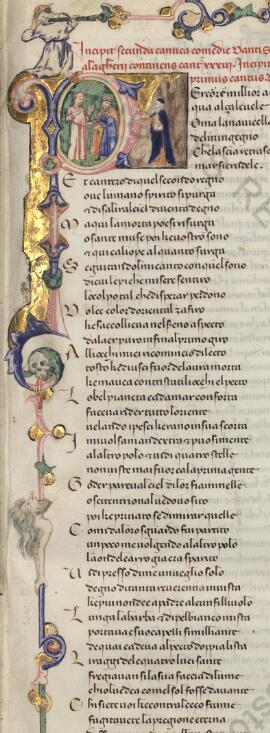 Incipit secunda cantica comedie Dantis
alagherii continens cant xxxiij Incipit
primus cantus
P Er cor e millior a
qua alça le uele
Omai la nauicella
del mio ingegno
Che lascia retro a se
mar si crudele
E t cantero di quel secondo regno
oue lumano spirito si purga
et di salire al ciel diuenta degno
M a qui la morta poesi risurga
o sante muse poi che uostro sono
et qui caliope alquanto surga
S eguitando il mio canto con quel sono
di cui le piche misere sentiro
lo colpo tal che disperar perdono
D olce color doriental zafiro
che saccoglieua nel sereno aspecto
dal aer puro infinal primo giro
A lli occhi miei ricomincio dilecto
tosto che usci fuor de laura morta
che mauea contristati li occhi el pecto
L o bel pianeta cadamar conforta
faceua rider tutto loriente
uelando i pesci cherano in sua scorta
I mi uolsi a man dextra et puosi mente
al altro polo et uidi quatro stelle
non uiste mai fuor cala prima gente
G oder pareua il ciel di lor fiammelle
o setentrional uedouo sito
poi che priuato se di mirar quelle
C om io dal oro sguardo fui partito
un poco me uolgendo al altro polo
la onde l carro gia era sparito
V idi presso di me un ueglio solo
degno di tanta reuerenza in uista
che piu non dee a padre alcun filliuolo
L unga la barba et di pel bianco mista
portaua a suoi capelli simigliante
de quai cadeua al pecto doppia lista
L i raggi de le quatro luci sante
fregiauan si la sua faccia di lume
chio l uedea come l sol fosse dauante
C hi siete uoi che contra l cieco fiume
fugito auete la pregione eterna